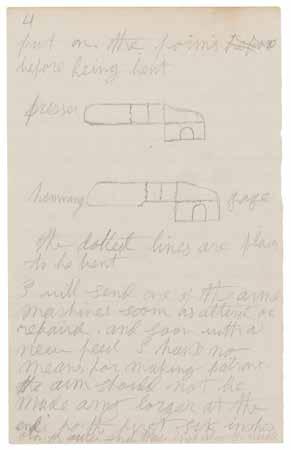 4
put on the points
before being bent
presser
hemming gage
the dottest lines are place
to be bent
I will send one of the arm
machines soon as altered or
repaird. and soon with a
new feed I have no
means for making patrons
the arm should not be
made any larger at the
end